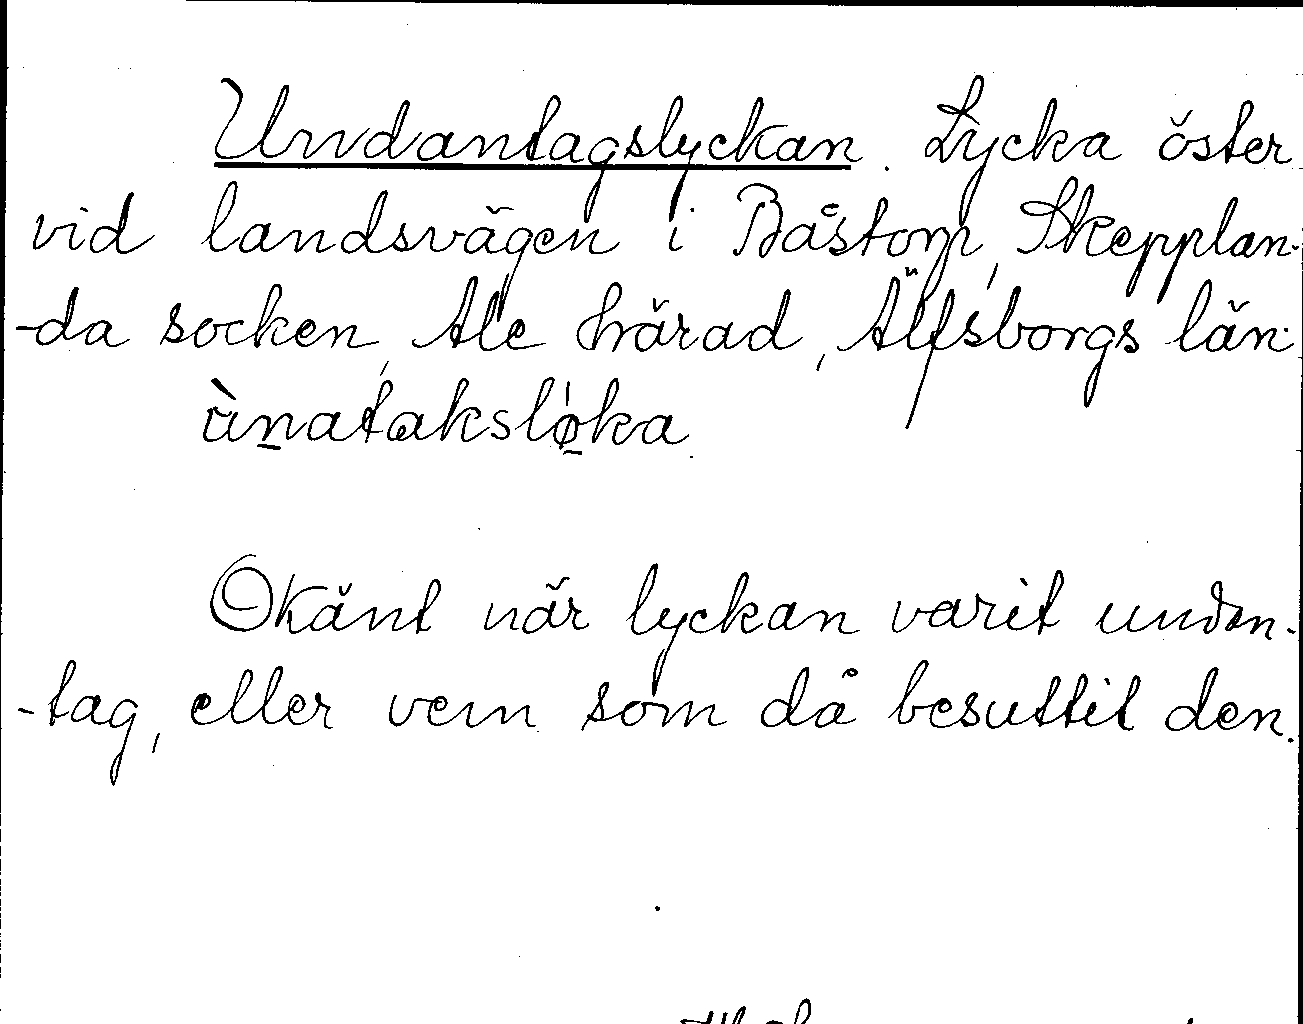 Undantagslyckan. Lycka öster
vid landsvägen i Båstorp, Skepplan-
-da socken, Ale härad, Älfsborgs län.
ùn̲atakslø̲ka.
Okänt när lyckan varit undan-
-tag, eller vem som då besuttit den.